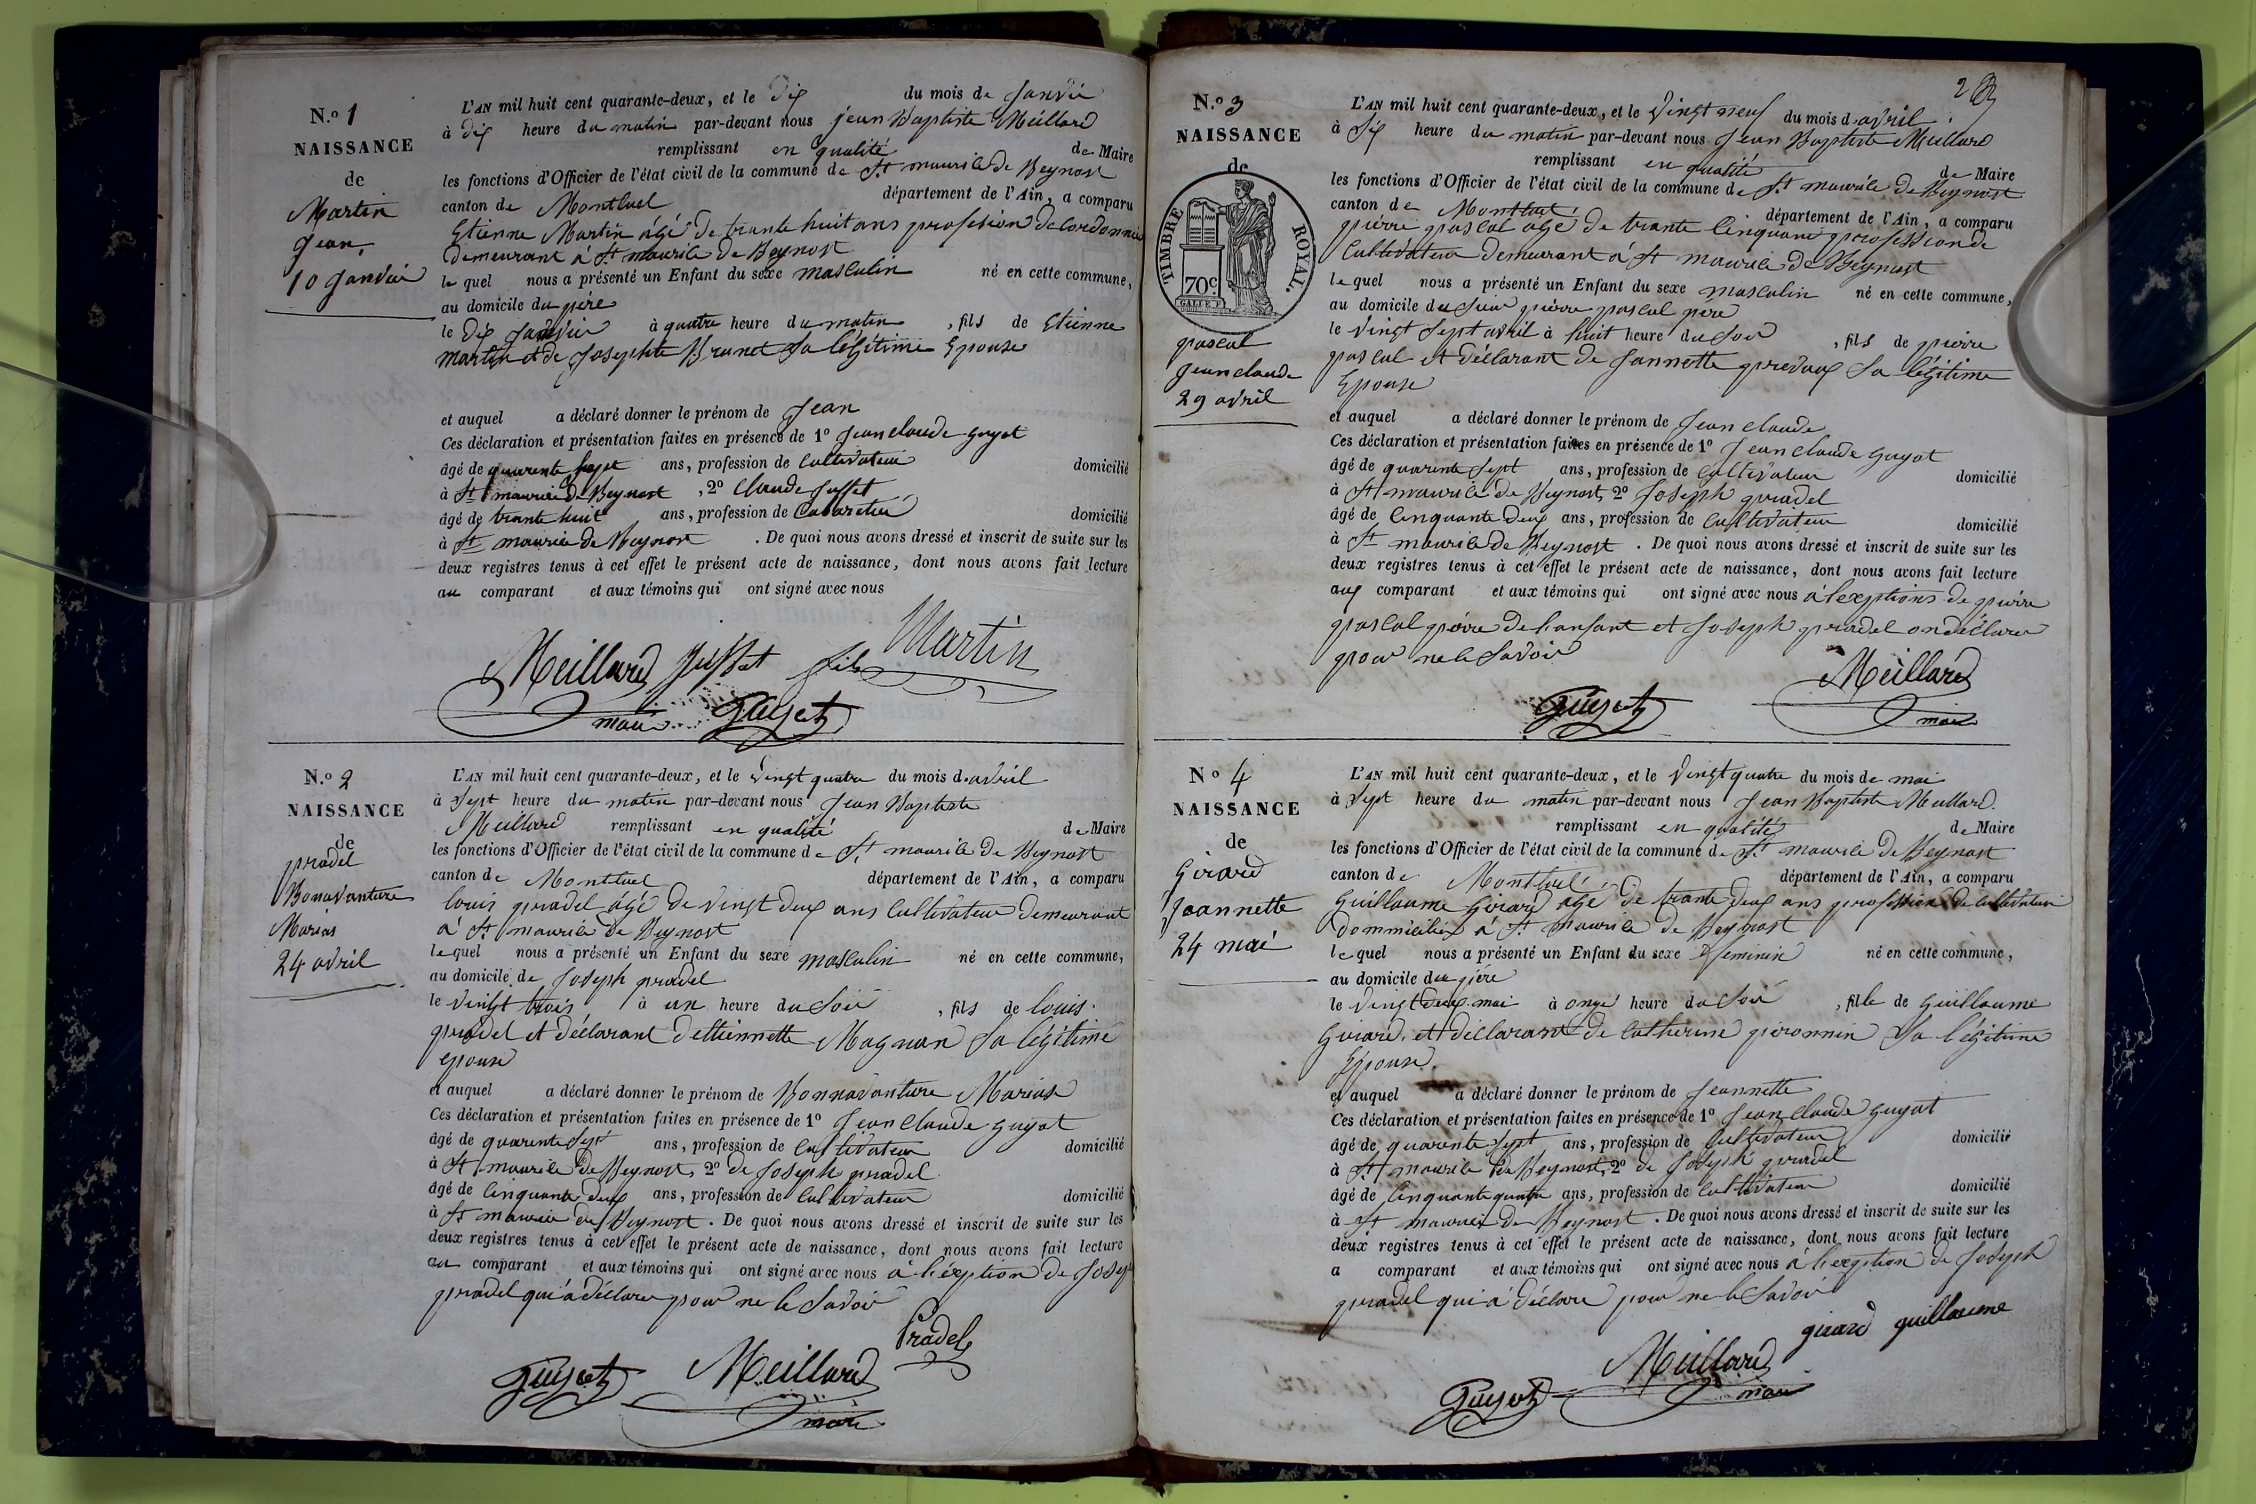 N.o 1
NAISSANCE
de
Martin
Jean
10 Janvier
L'AN mil huit cent quarante-deux, et le dix du mois de Janvié
à dix heure du matin par-devant nous jean Baptiste Meillard
remplissant en qualité de Maire
les fonctions d'Officier de l'état civil de la commune de St maurice de Beynost
canton de Montluel département de l'Ain, a comparu
Etienne Martin âgé de trante huit ans profession de Cordonnier
demeurant à St maurice de Beynost
le quel nous a présenté un Enfant du sexe masculin né en cette commune,
au domicile du père
le dix Janvier à quatre heure du matin, fils de Etienne
Martin et de Josephte Brunet Sa légitime Epouse
et auquel a déclaré donner le prénom de Jean
Ces déclaration et présentation faites en présence de 1o Jean claude guyot
âgé de quarente sept ans, profession de Cultivateur domicilié
à St maurice de Beynost, 2o Claude Juffet
âgé de trante huit ans, profession de Cabaretier domicilié
à St maurice de Beynost. De quoi nous avons dressé et inscrit de suite sur les
deux registres tenus à cet effet le présent acte de naissance, dont nous avons fait lecture
au comparant et aux témoins qui ont signé avec nous
Martin
Meillard Juffet fils
maire Guyot
N.o 2
NAISSANCE
de
pradel
Bonavanture
Marias
24 avril
L'AN mil huit cent quarante-deux, et le vingt quatre du mois d'avril
à Sept heure du matin par-devant nous Jean Baptiste
Meillard remplissant en qualité de Maire
les fonctions d'Officier de l'état civil de la commune de St maurice de Beynost
canton de Montluel département de l'Ain, a comparu
louis pradel âgé de vingt deux ans Cultivateur demeurant
à St maurice de Beynost
le quel nous a présenté un Enfant du sexe masculin né en cette commune,
au domicile de Joseph pradel
le vingt trois à un heure du Soir, fils de louis
pradel et déclarant dettiennette Magnan Sa légitime
epouse
et auquel a déclaré donner le prénom de Bonnavanture Marias
Ces déclaration et présentation faites en présence de 1o Jean Claude guyot
âgé de quarente Sept ans, profession de Cultivateur domicilié
à St maurice de Beynost, 2o de Joseph pradel
âgé de Cinquante deux ans, profession de Cultivateur domicilié
à St maurice de Beynost. De quoi nous avons dressé et inscrit de suite sur les
deux registres tenus à cet effet le présent acte de naissance, dont nous avons fait lecture
au comparant et aux témoins qui ont signé avec nous à l'éxption de Josep
pradel qui à déclaré pour ne le Savoir
Pradel
Guyot Meillard
maire
2
N.o 3
NAISSANCE
de
TIMBRE ROYAL.
70c.
pascal
Jean claude
29 avril
L'AN mil huit cent quarante-deux, et le vingt neuf du mois d'avril
à Six heure du matin par-devant nous Jean Baptiste Meillard
remplissant en qualité de Maire
les fonctions d'Officier de l'état civil de la commune de St maurice de Beynost
canton de Montluel département de l'Ain, a comparu
pierre pascal âgé de trante Cinq ans profession de
Cultivateur demeurant à St maurice de Beynost
le quel nous a présenté un Enfant du sexe masculin né en cette commune,
au domicile du Sieur pierre pascal père
le vingt Sept avril à huit heure du Soir, fils de pierre
pascal et déclarant de Jannette prevaux Sa légitime
Epouse
et auquel a déclaré donner le prénom de Jean claude
Ces déclaration et présentation faites en présence de 1o Jean claude guyot
âgé de quarente Sept ans, profession de Cultivateur domicilié
à St maurice de Beynost, 2o Joseph pradel
âgé de Cinquante deux ans, profession de Cultivateur domicilié
à St maurice de Beynost. De quoi nous avons dressé et inscrit de suite sur les
deux registres tenus à cet effet le présent acte de naissance, dont nous avons fait lecture
aux comparant et aux témoins qui ont signé avec nous à l'exptions de pierre
pascal père de l'anfant et Joseph pradel on déclarer
pour ne le Savoir
Meillard
Guyot maire
No 4
NAISSANCE
de
Girard
Joannette
24 mai
L'AN mil huit cent quarante-deux, et le vingt quatre du mois de mai
à Sept heure du matin par-devant nous Jean Baptiste Meillard
remplissant en qualité de Maire
les fonctions d'Officier de l'état civil de la commune de St maurice de Beynost
canton de Montluel département de l'Ain, a comparu
Guillaume Girard âgé de trante deux ans profession de cultivateur
dommicilié à St maurice de Beynost
le quel nous a présenté un Enfant du sexe feminin né en cette commune,
au domicile du père
le vingt deux mai à onze heure du Soir, fille de Guillaume
Girard et déclarant de Catherine peronnin Sa légitime
Epouse
et auquel a déclaré donner le prénom de Jeannette
Ces déclaration et présentation faites en présence de 1o Jean claude guyot
âgé de quarente Sept ans, profession de Cultivateur domicilié
à St maurice de Beynost, 2o de Joseph pradel
âgé de Cinquante quatre ans, profession de Cultivateur domicilié
à St maurice de Beynost. De quoi nous avons dressé et inscrit de suite sur les
deux registres tenus à cet effet le présent acte de naissance, dont nous avons fait lecture
a comparant et aux témoins qui ont signé avec nous à l'exption de Joseph
pradel qui à déclaré pour ne le Savoir
girard guillaume
Meillard
Guyot maire